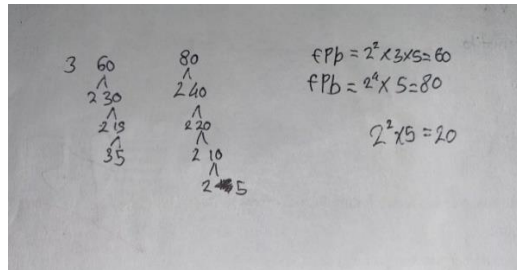 3 60
2 30
2 15
3 5
80
2 40
2 20
2 10
2 5
fPb = 2² x 3 x 5 = 60
fPb = 2⁴ x 5 = 80
2² x 5 = 20